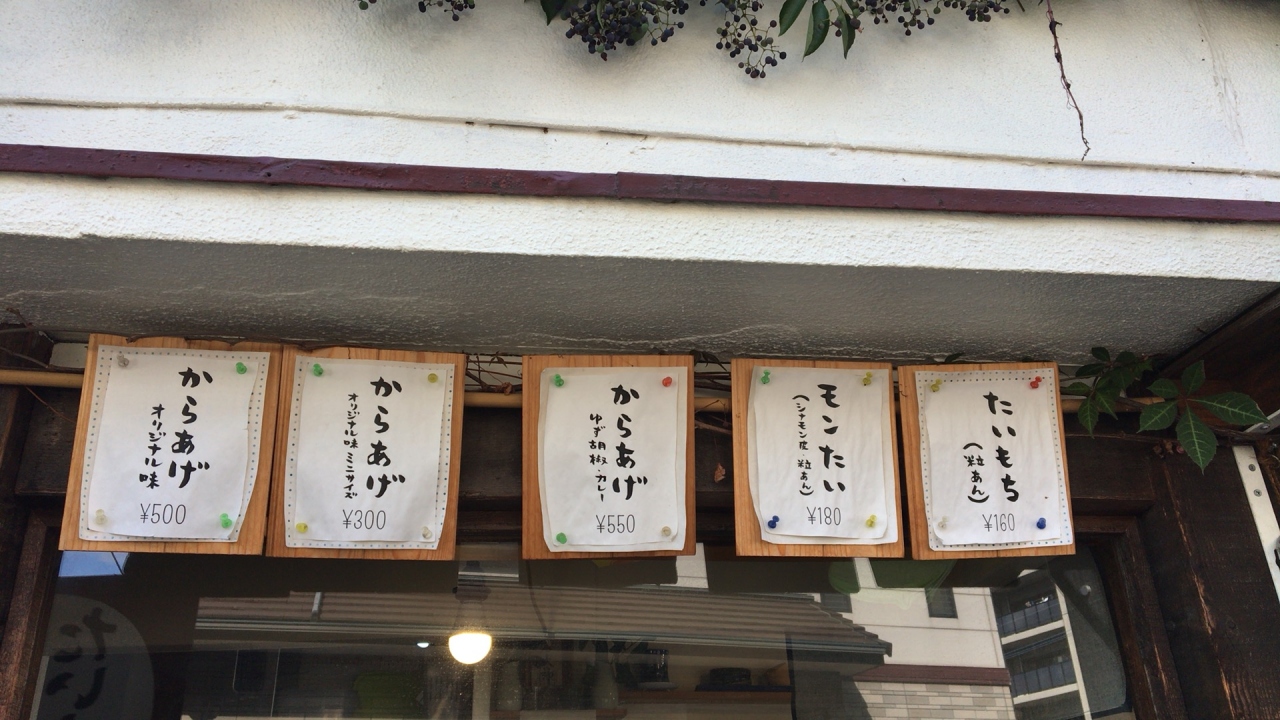 からあげ
オリジナル味
¥500
からあげ
オリジナル味 ミニサイズ
¥300
からあげ
ゆず胡椒・カレー
¥550
モンたい
(シナモン皮・粒あん)
¥180
たいもち
(粒あん)
¥160